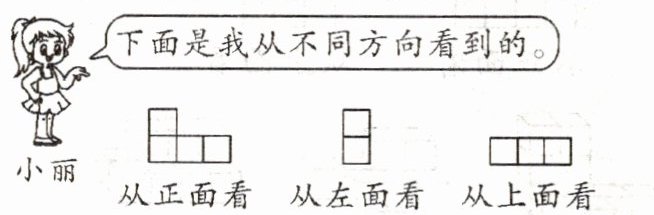 下面是我从不同方向看到的。
小丽
从正面看 从左面看 从上面看